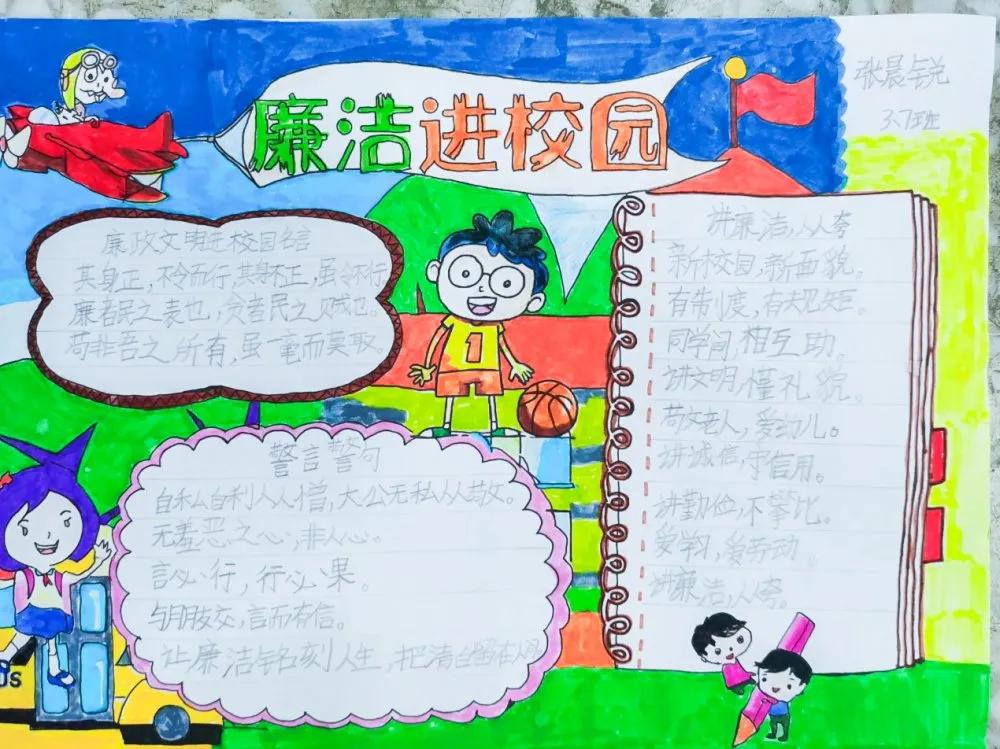 廉洁进校园
张晨锐
3.7班
廉政文明进校园名言
其身正，不令而行，其身不正，虽令不行
廉者民之表也，贪者民之贼也。
苟非吾之所有，虽一毫而莫取。
警言警句
自私自利人人憎，大公无私人人敬。
无羞恶之心，非人心。
言必行，行必果。
与朋友交，言而有信。
让廉洁铭刻人生，把清白留在人间
讲廉洁，人人夸
新校园，新面貌。
有制度，有规矩。
同学间相互助。
讲文明，懂礼貌。
敬老人，爱幼儿。
讲诚信，守信用。
讲勤俭，不攀比。
爱学习，爱劳动
讲廉洁，人人夸。
1
us